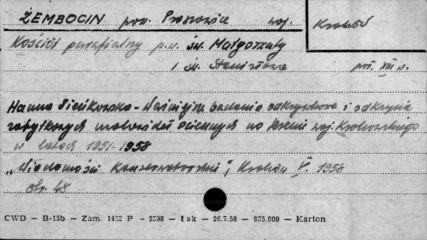 ŻEMBOCIN pow. Proszowice woj. Kraków
Kościół parafialny p.w. św. Małgorzaty
i św. Stanisława poł. XIII w.
Hanna Pieńkowska - Ważniejsze badania odkrywkowe i odkrycia
zabytkowych malowideł ściennych na terenie woj. Krakowskiego
w latach 1951-1958
"Wiadomości Konserwatorskie", Kraków 1958
str. 48
CWD — B-15b — Zam. 1452 P — 2398 — Łak — 26.7.58 — 835.000 — Karton